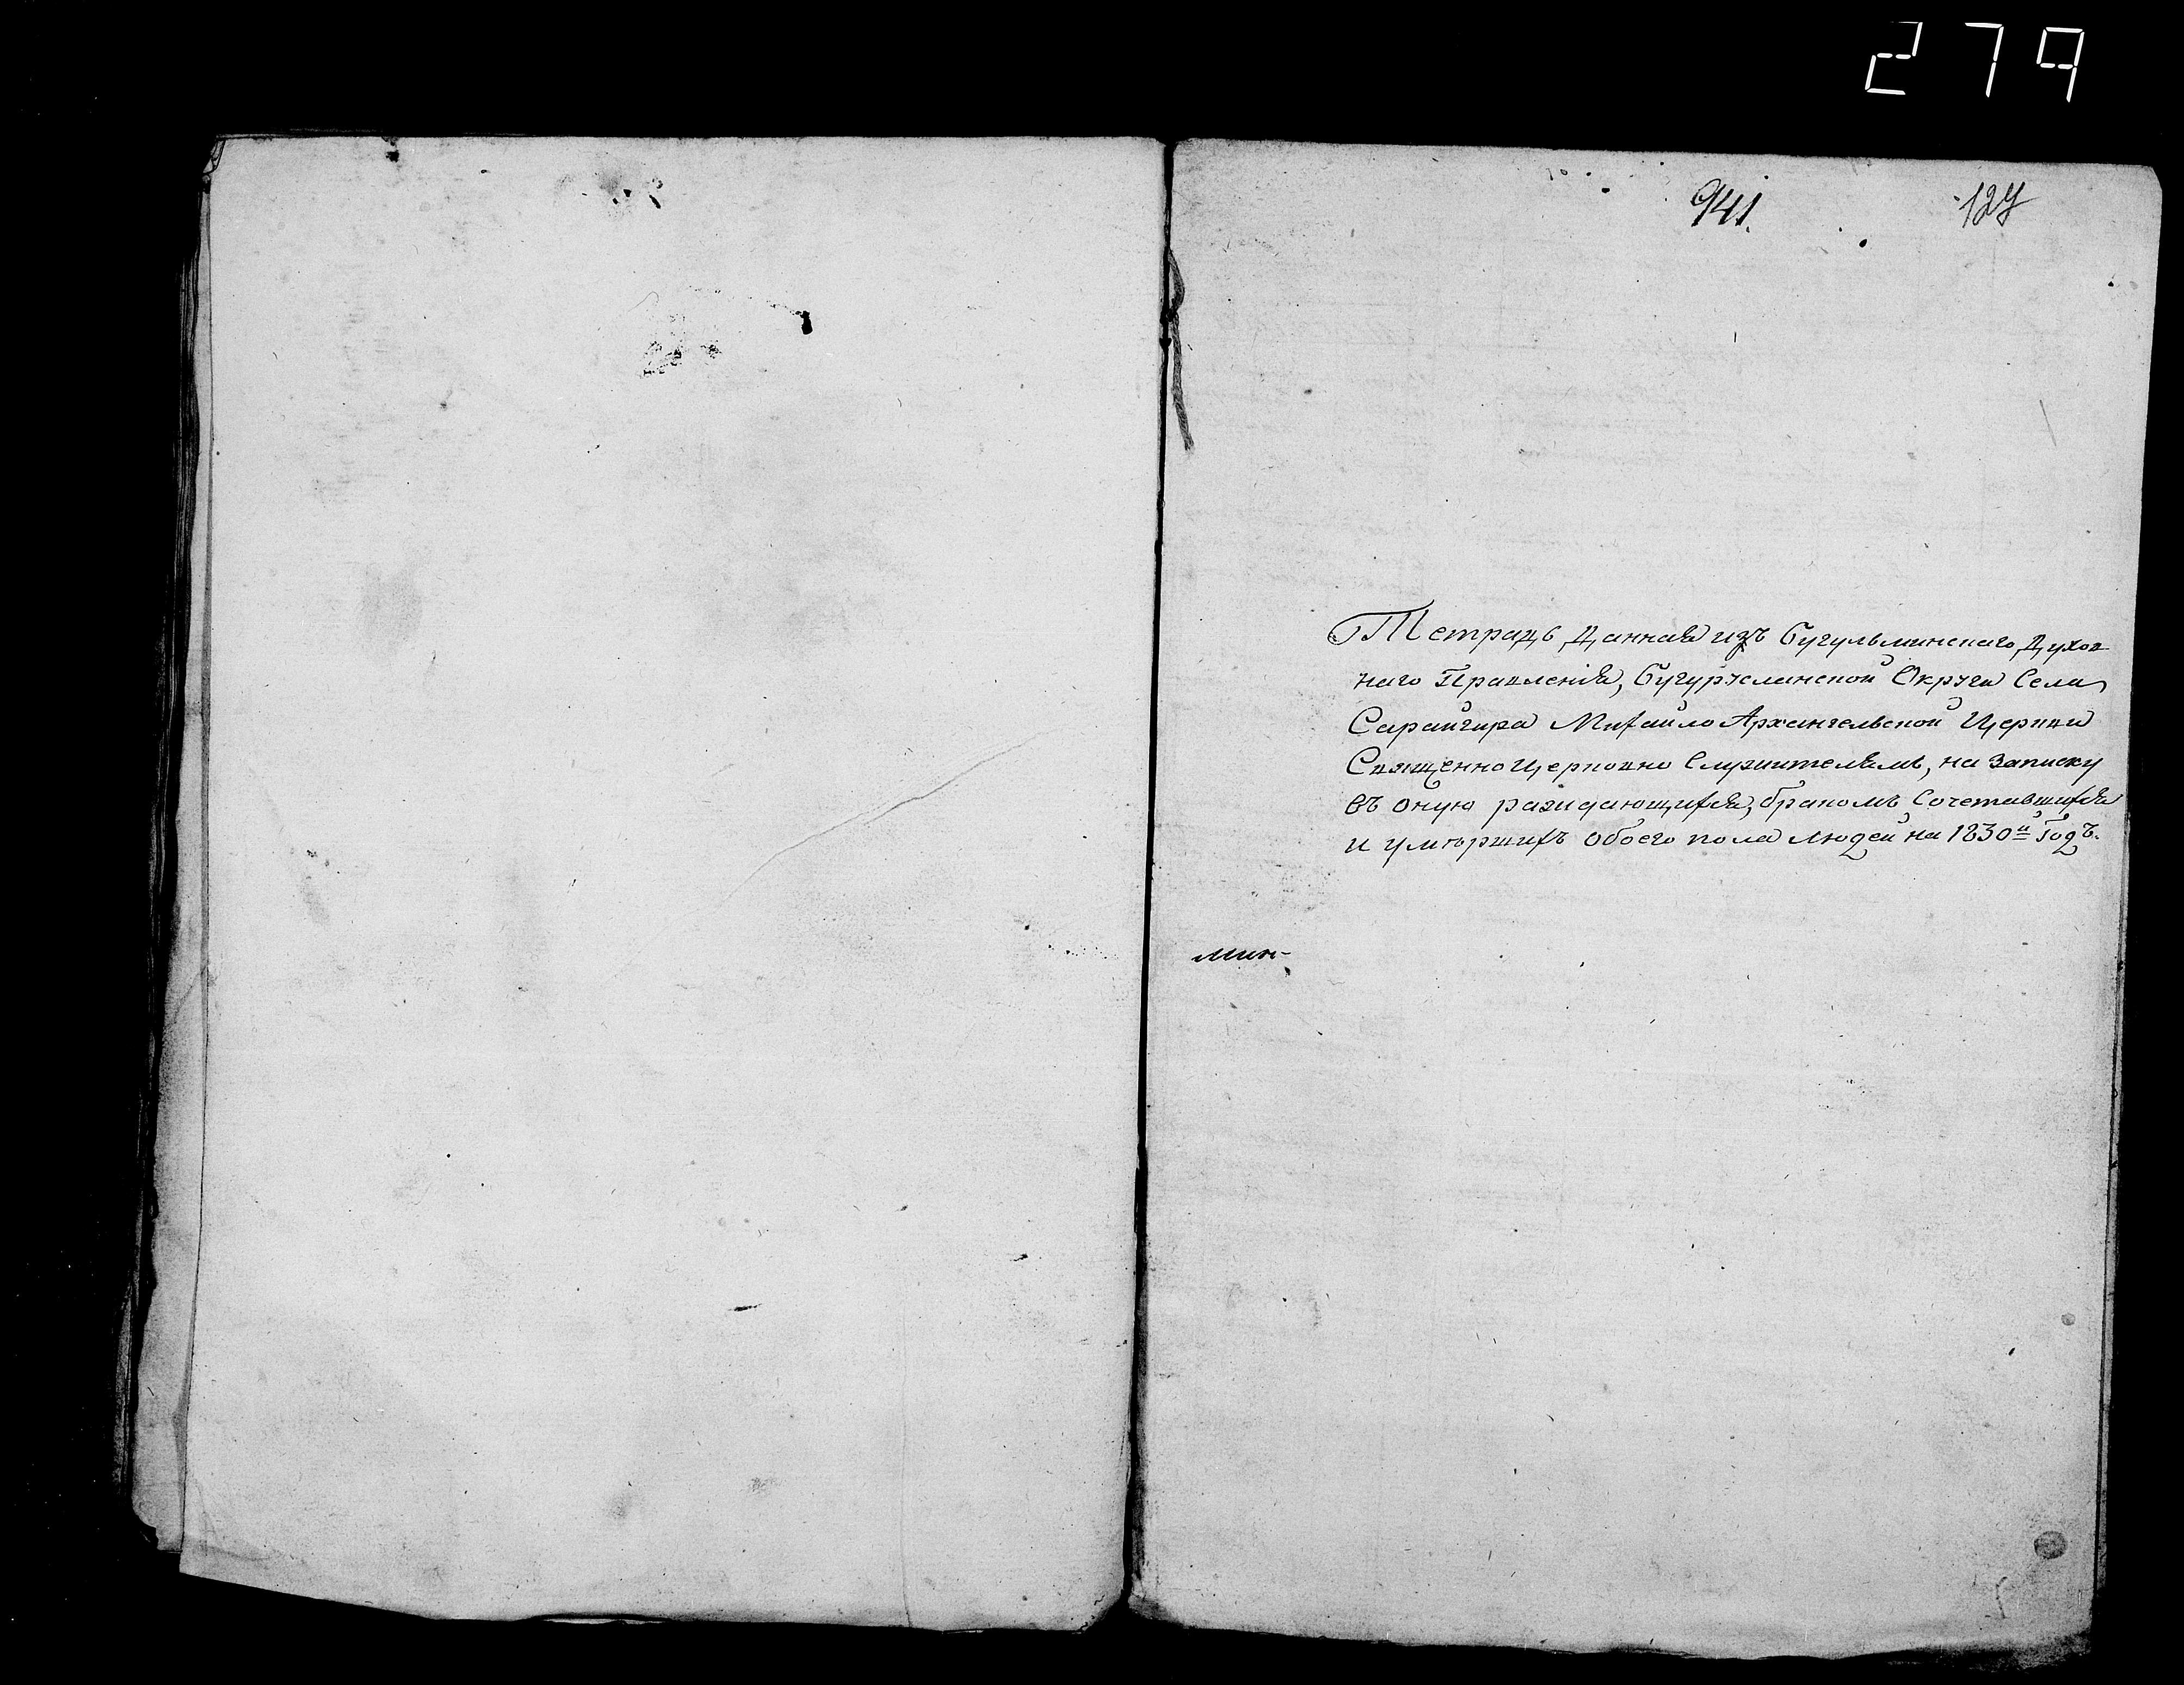 279
941.
127
Тетрадь данная изъ Бугульминскаго Духов
наго Правленія, Бугурусланской Округи Села
Сарайгира Михайло Архангельской Церкви
Священно Церковно Служителямъ, на записку
въ оную раждающихся, бракомъ Сочетавшихся
и умершихъ обоего пола людей на 1830й Годъ.
мин-